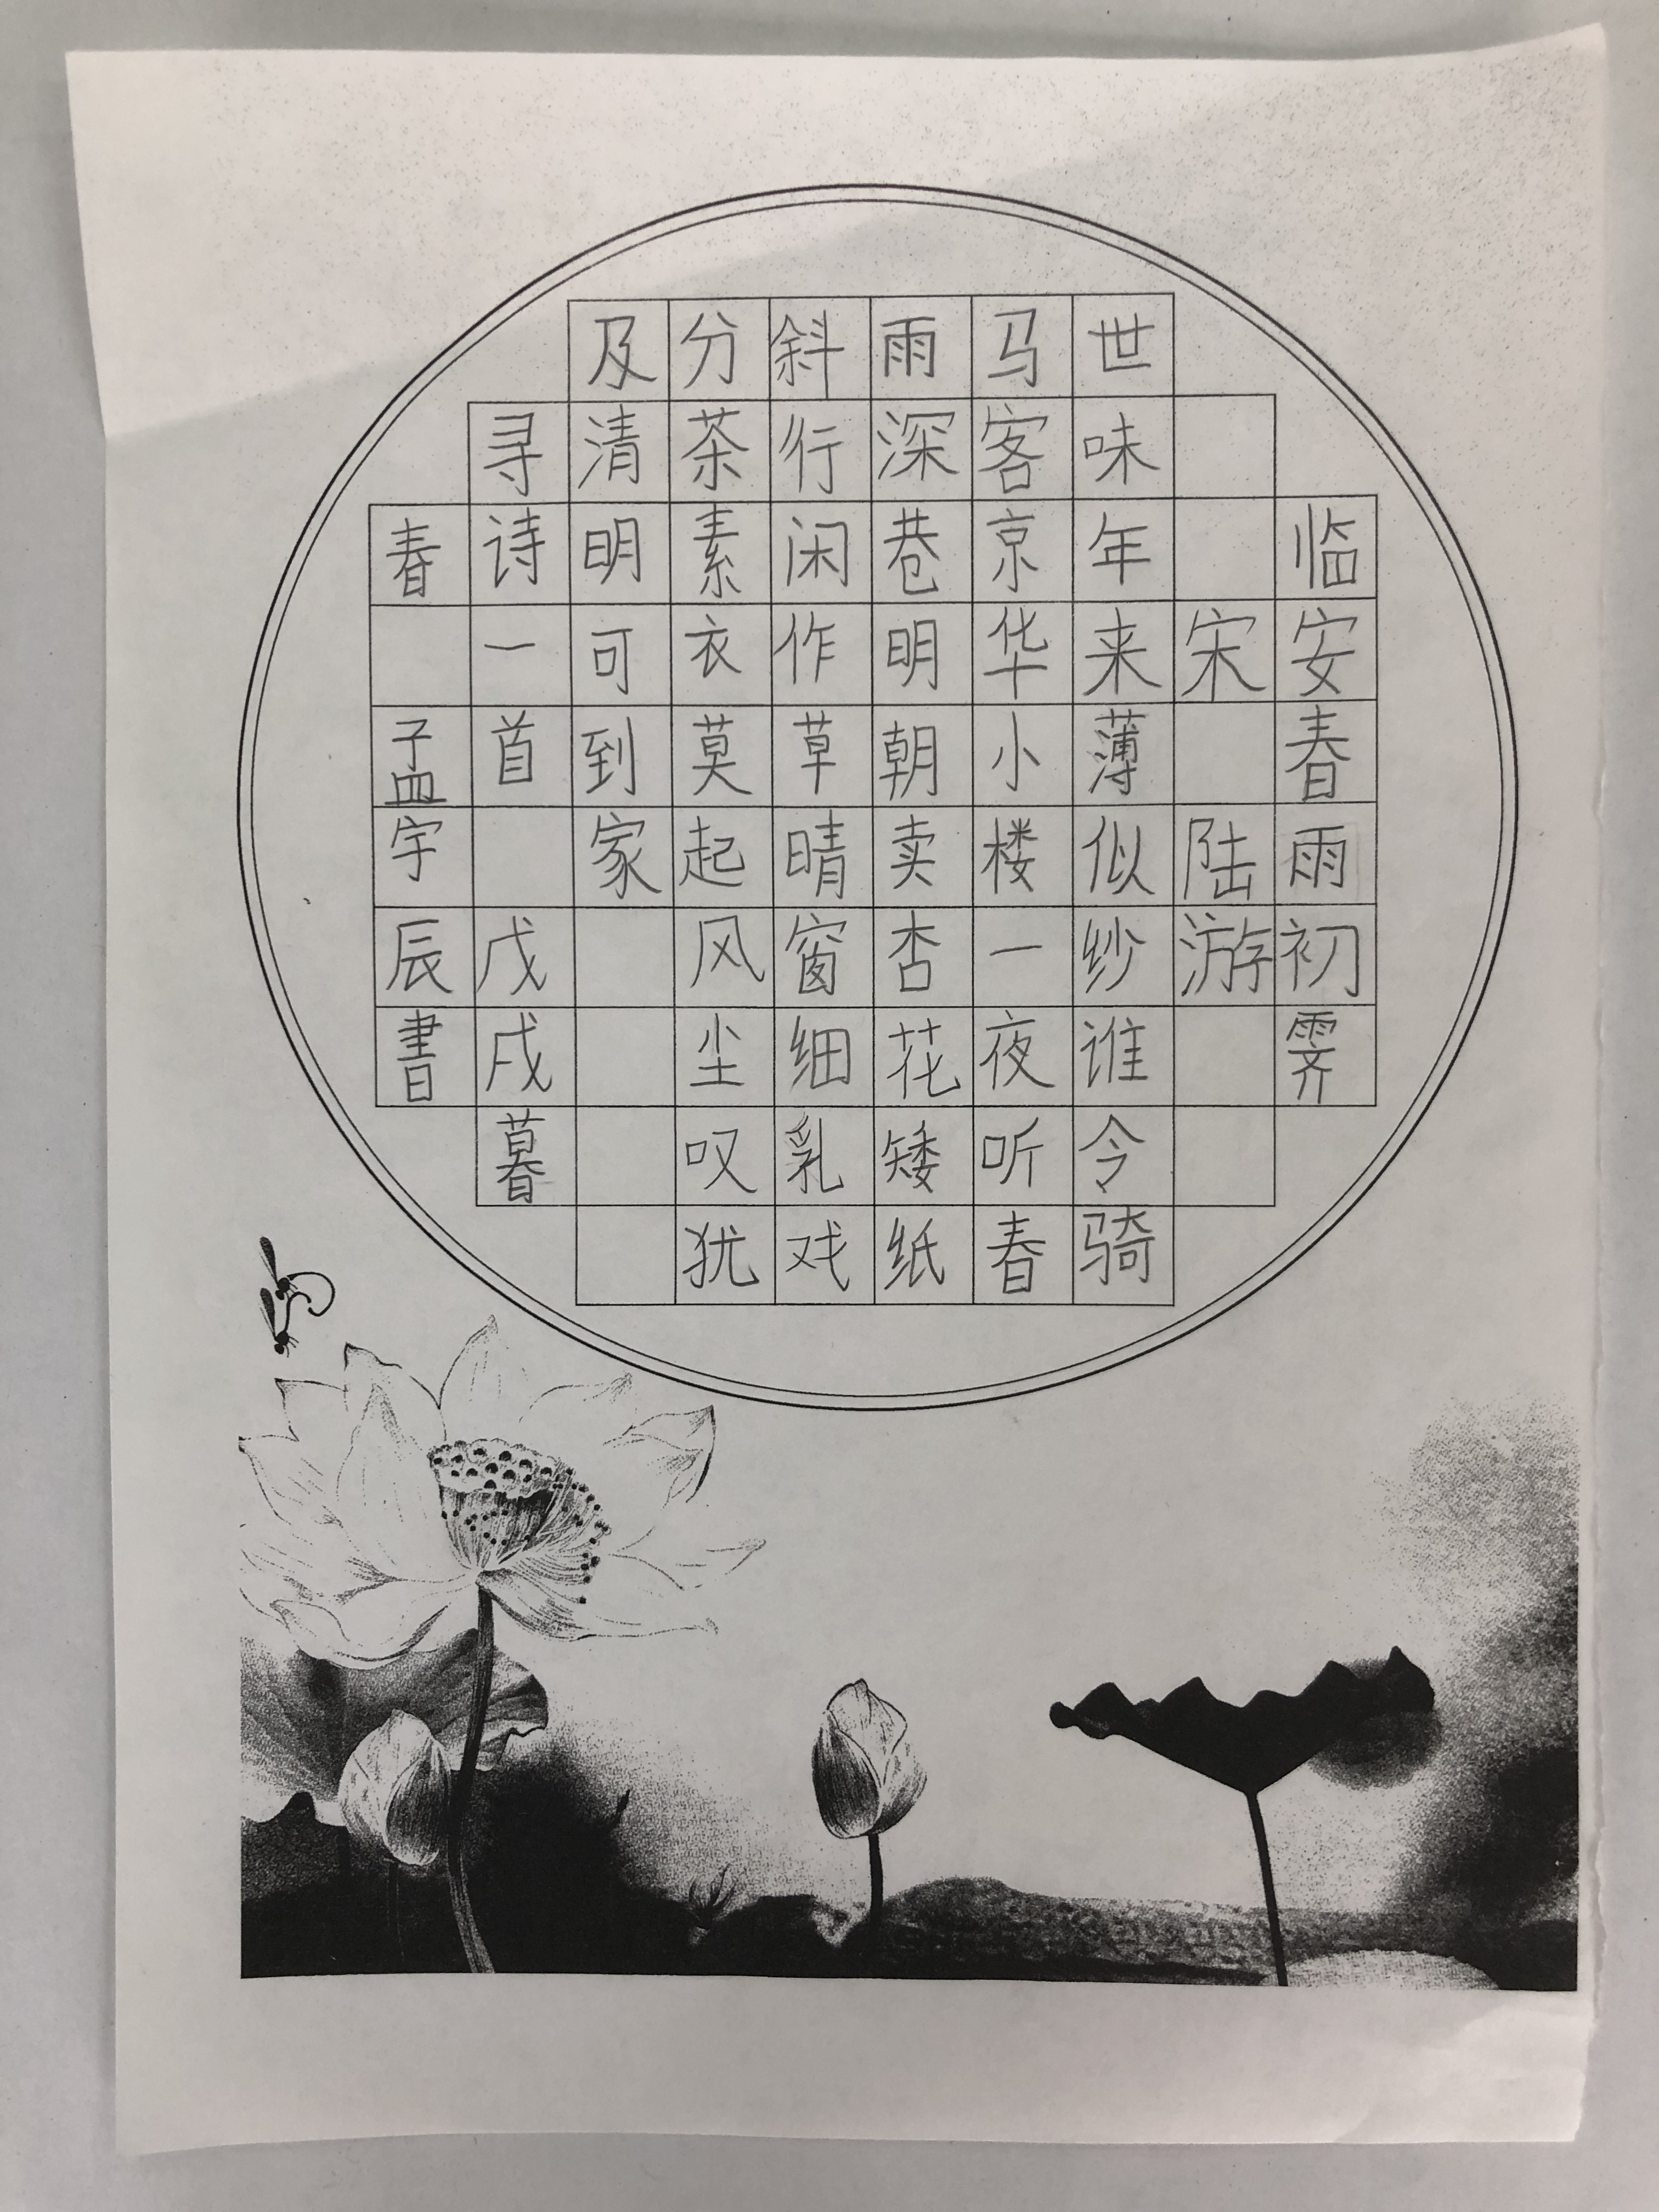 临安春雨初霁
宋 陆游
世味年来薄似纱谁令骑
马客京华小楼一夜听春
雨深巷明朝卖杏花矮纸
斜行闲作草晴窗细乳戏
分茶素衣莫起风尘叹犹
及清明可到家
寻诗一首 戊戌暮
春 孟宇辰書